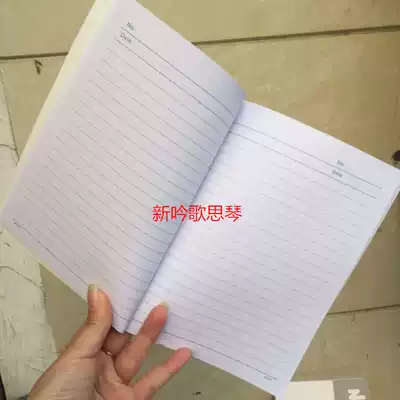 No
Date
No
Date
新吟歌思琴
N